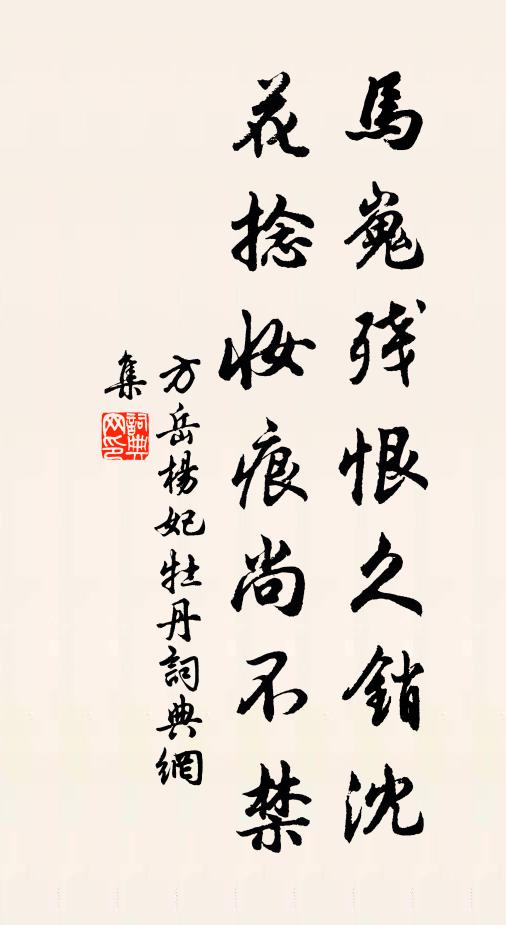 馬嵬殘恨久銷沈
花捻妝痕尚不禁
方岳楊妃牡丹詞典網
集
詞典網印